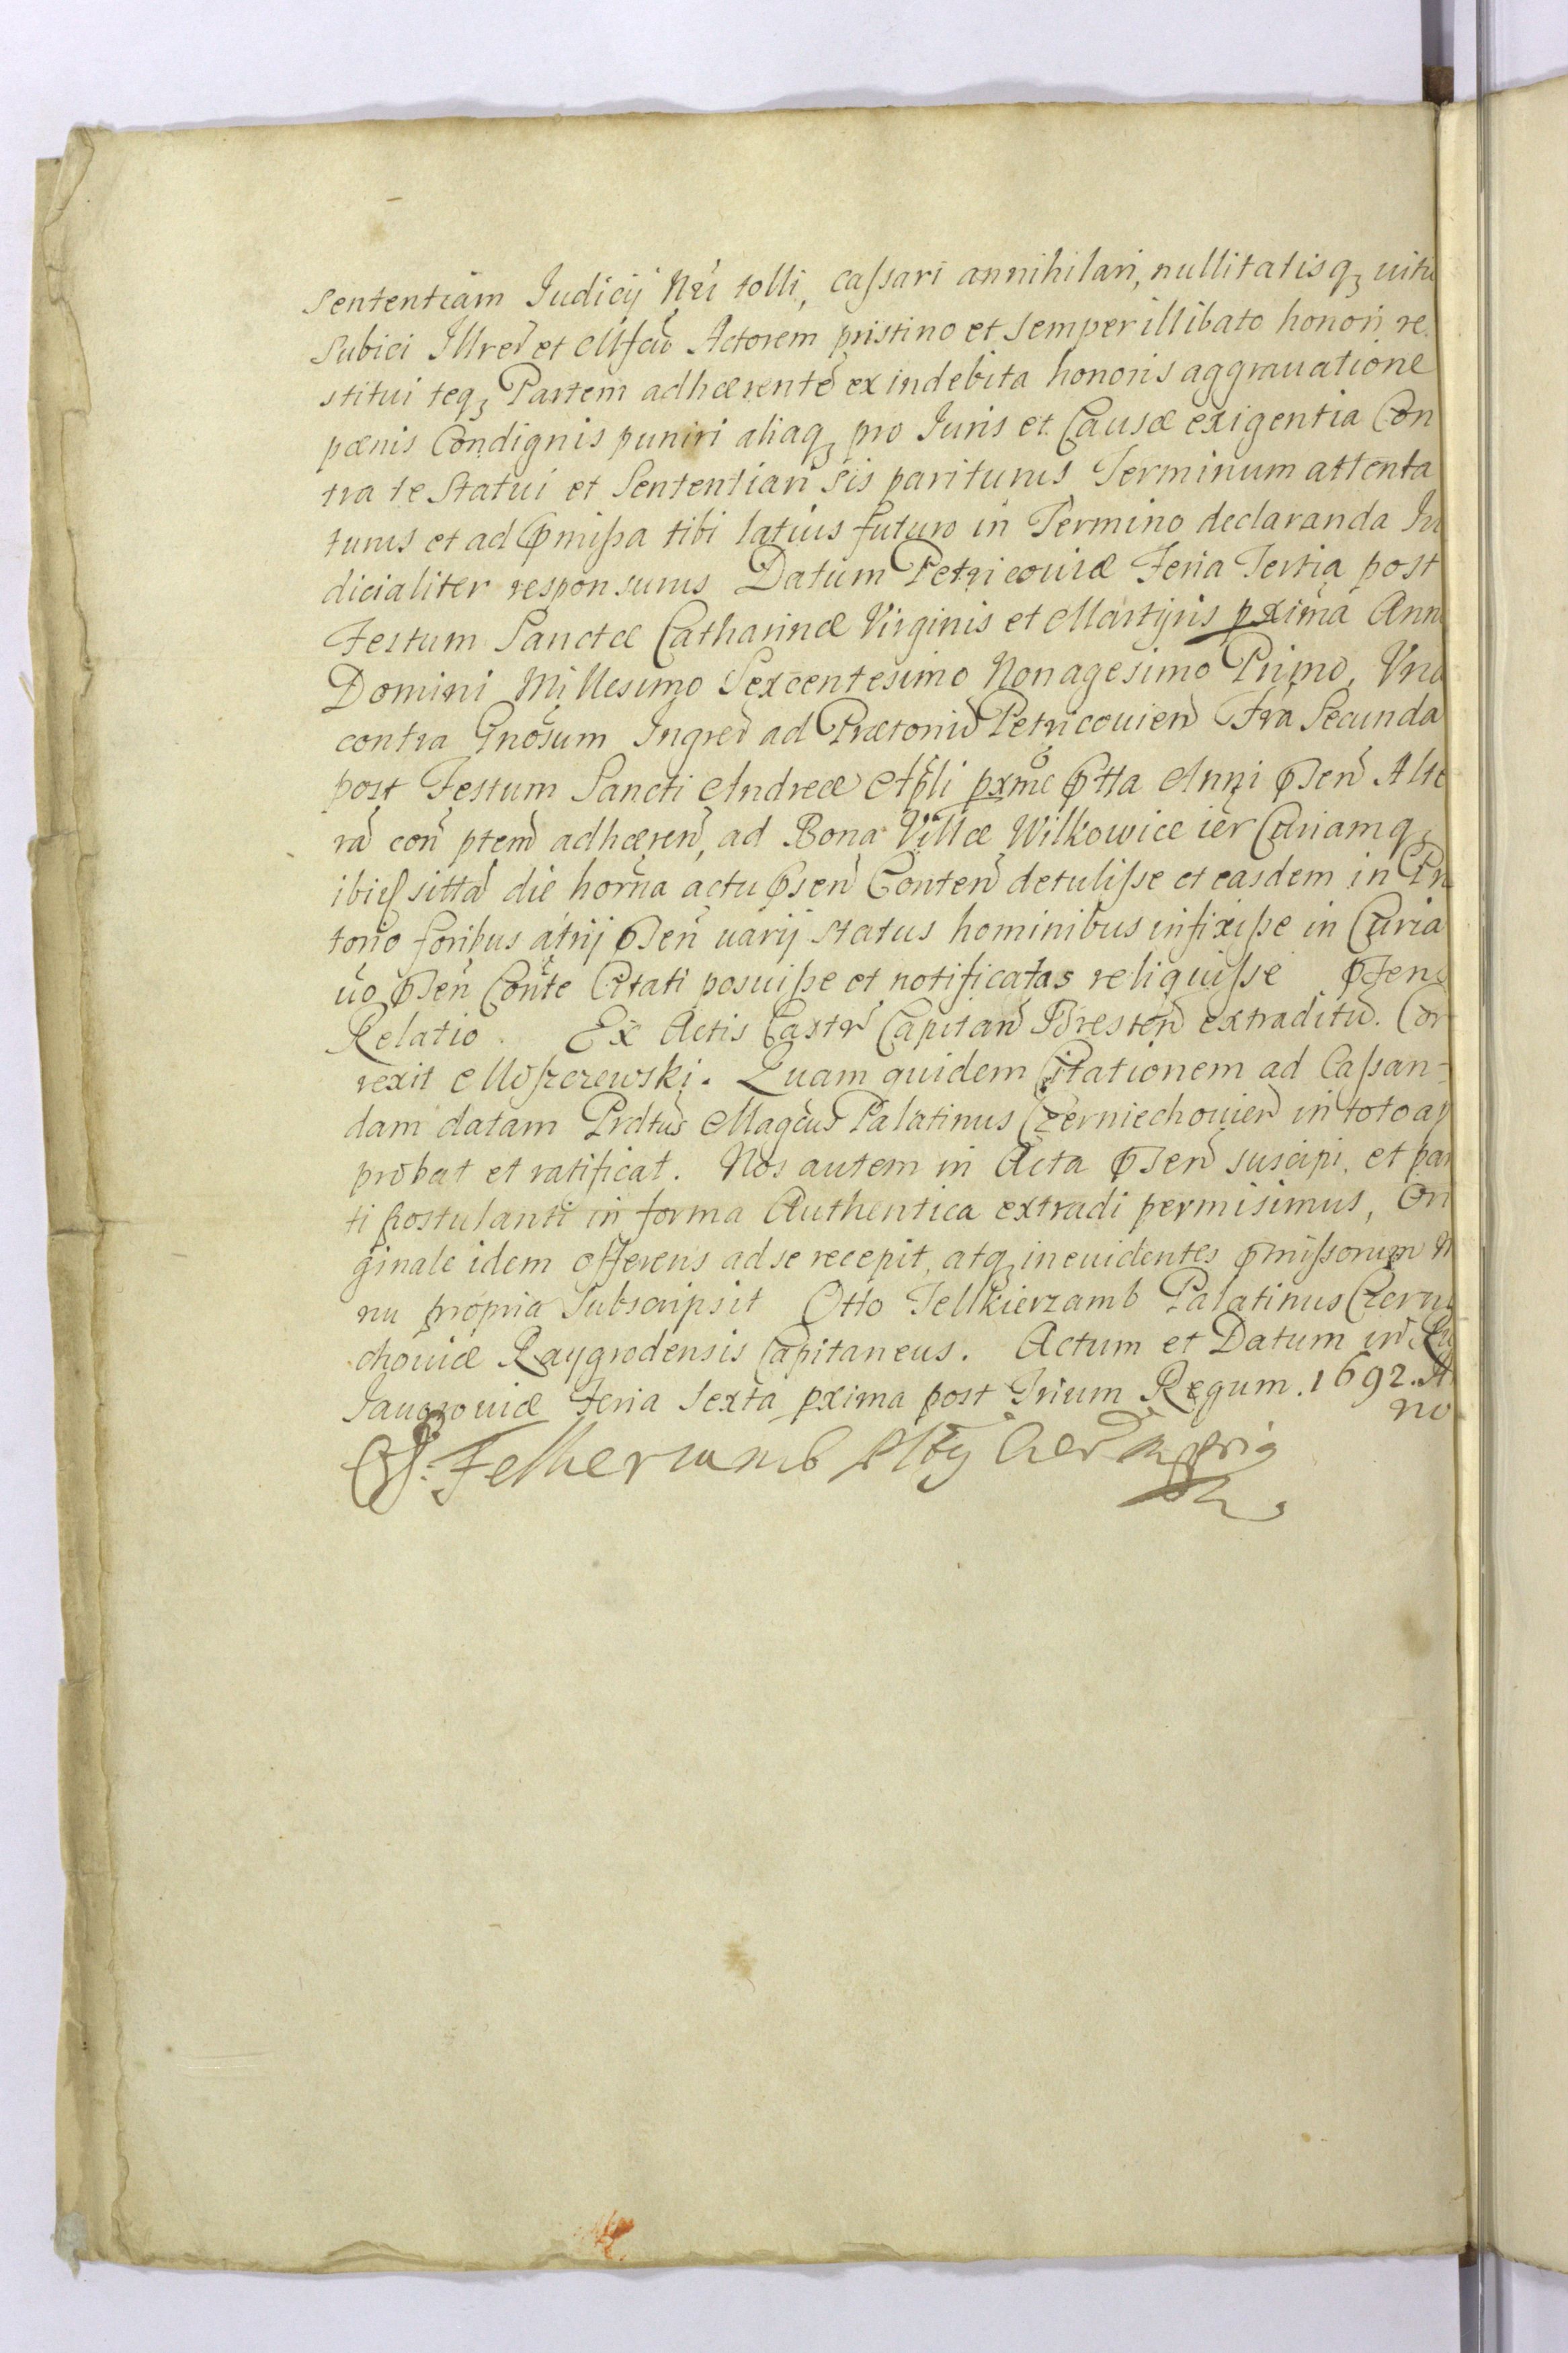 sententiam Judicij Nri tolli, cassari annihilari, nullitatisq₃ uitio
subici Illrem et Mfcum Actorem pristino et semper illibato honori re
stitui teq₃ Partem adhærentem ex indebita honoris aggrauatione
pænis Condignis puniri aliaq₃ pro Juris et Causæ exigentia Con
tra te statui et Sententiari sis pariturus Terminum attenta
turus et ad pmissa tibi latius futuro in Termino declaranda Iu
dicialiter responsurus Datum Petricouiæ Feria Tertia post
Festum Sanctæ Catharinæ Virginis et Martyris pxima Anno
Domini Millesimo Sexcentesimo Nonagesimo Primo, Vna
contra Gnosum Ingred ad Prætoriu Petricouien Fra Secunda
post Festum Sancti Andreæ Apli pxme ptta Anni psen Alte
ra con ptem adhæren, ad Bona Villæ Wilkowice ier Curiamq₃
ibid sitta die horna actu psen Conten detulisse et easdem in Præ
torio foribus atrij psen uarij status hominibus infixisse in Curia
uo psen Conte Citati posuisse et notificatas reliquisse psens
Relatio. Ex Actis Castr Capitan Bresten extraditu. Cor
rexit Moszczewski. Quam quidem Citationem ad Cassan=
dam datam Prdtus Magcus Palatinus Czerniechouien in toto ap
probat et ratificat. Nos autem in Acta psen suscipi, et par
ti postulanti in forma Authentica extradi permisimus, Ori
ginale idem offerens ad se recepit, atq₃ in euidentes pmissorum Ma
nu propria Subscripsit Otto Felkierzamb Palatinus Czernie
chouiæ Raygrodensis Capitaneus. Actum et Datum in
Jauorouiæ Feria Sexta pxima post Trium Regum. 1692. An
no
O. Felkerzamb